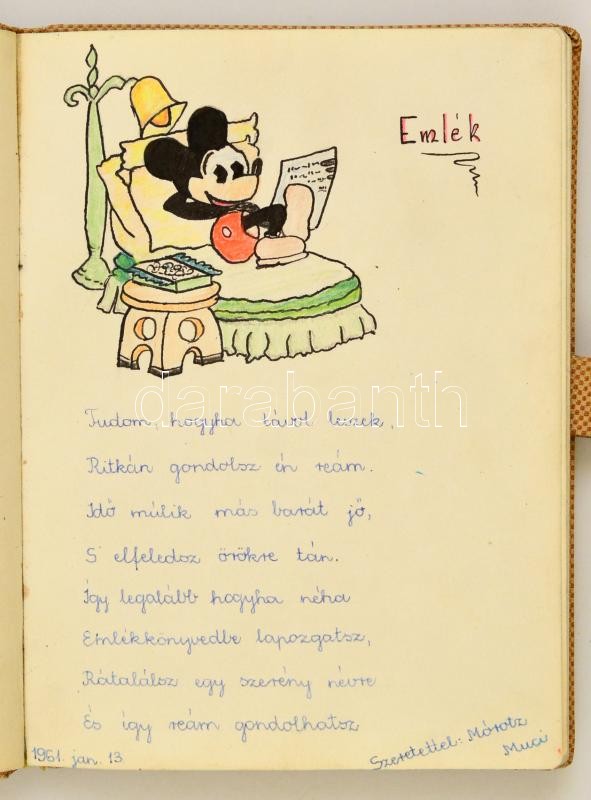 Emlék
darabanth
Tudom, hogyha távol leszek,
Ritkán gondolsz én reám.
Idő múlik más barát jő,
S elfeledsz örökre tán.
Így legalább hogyha néha
Emlékkönyvedbe lapozgatsz,
Rátalálsz egy szerény névre
És így reám gondolhatsz
1961. jan. 13.
Szeretettel: Mórotz
Muci